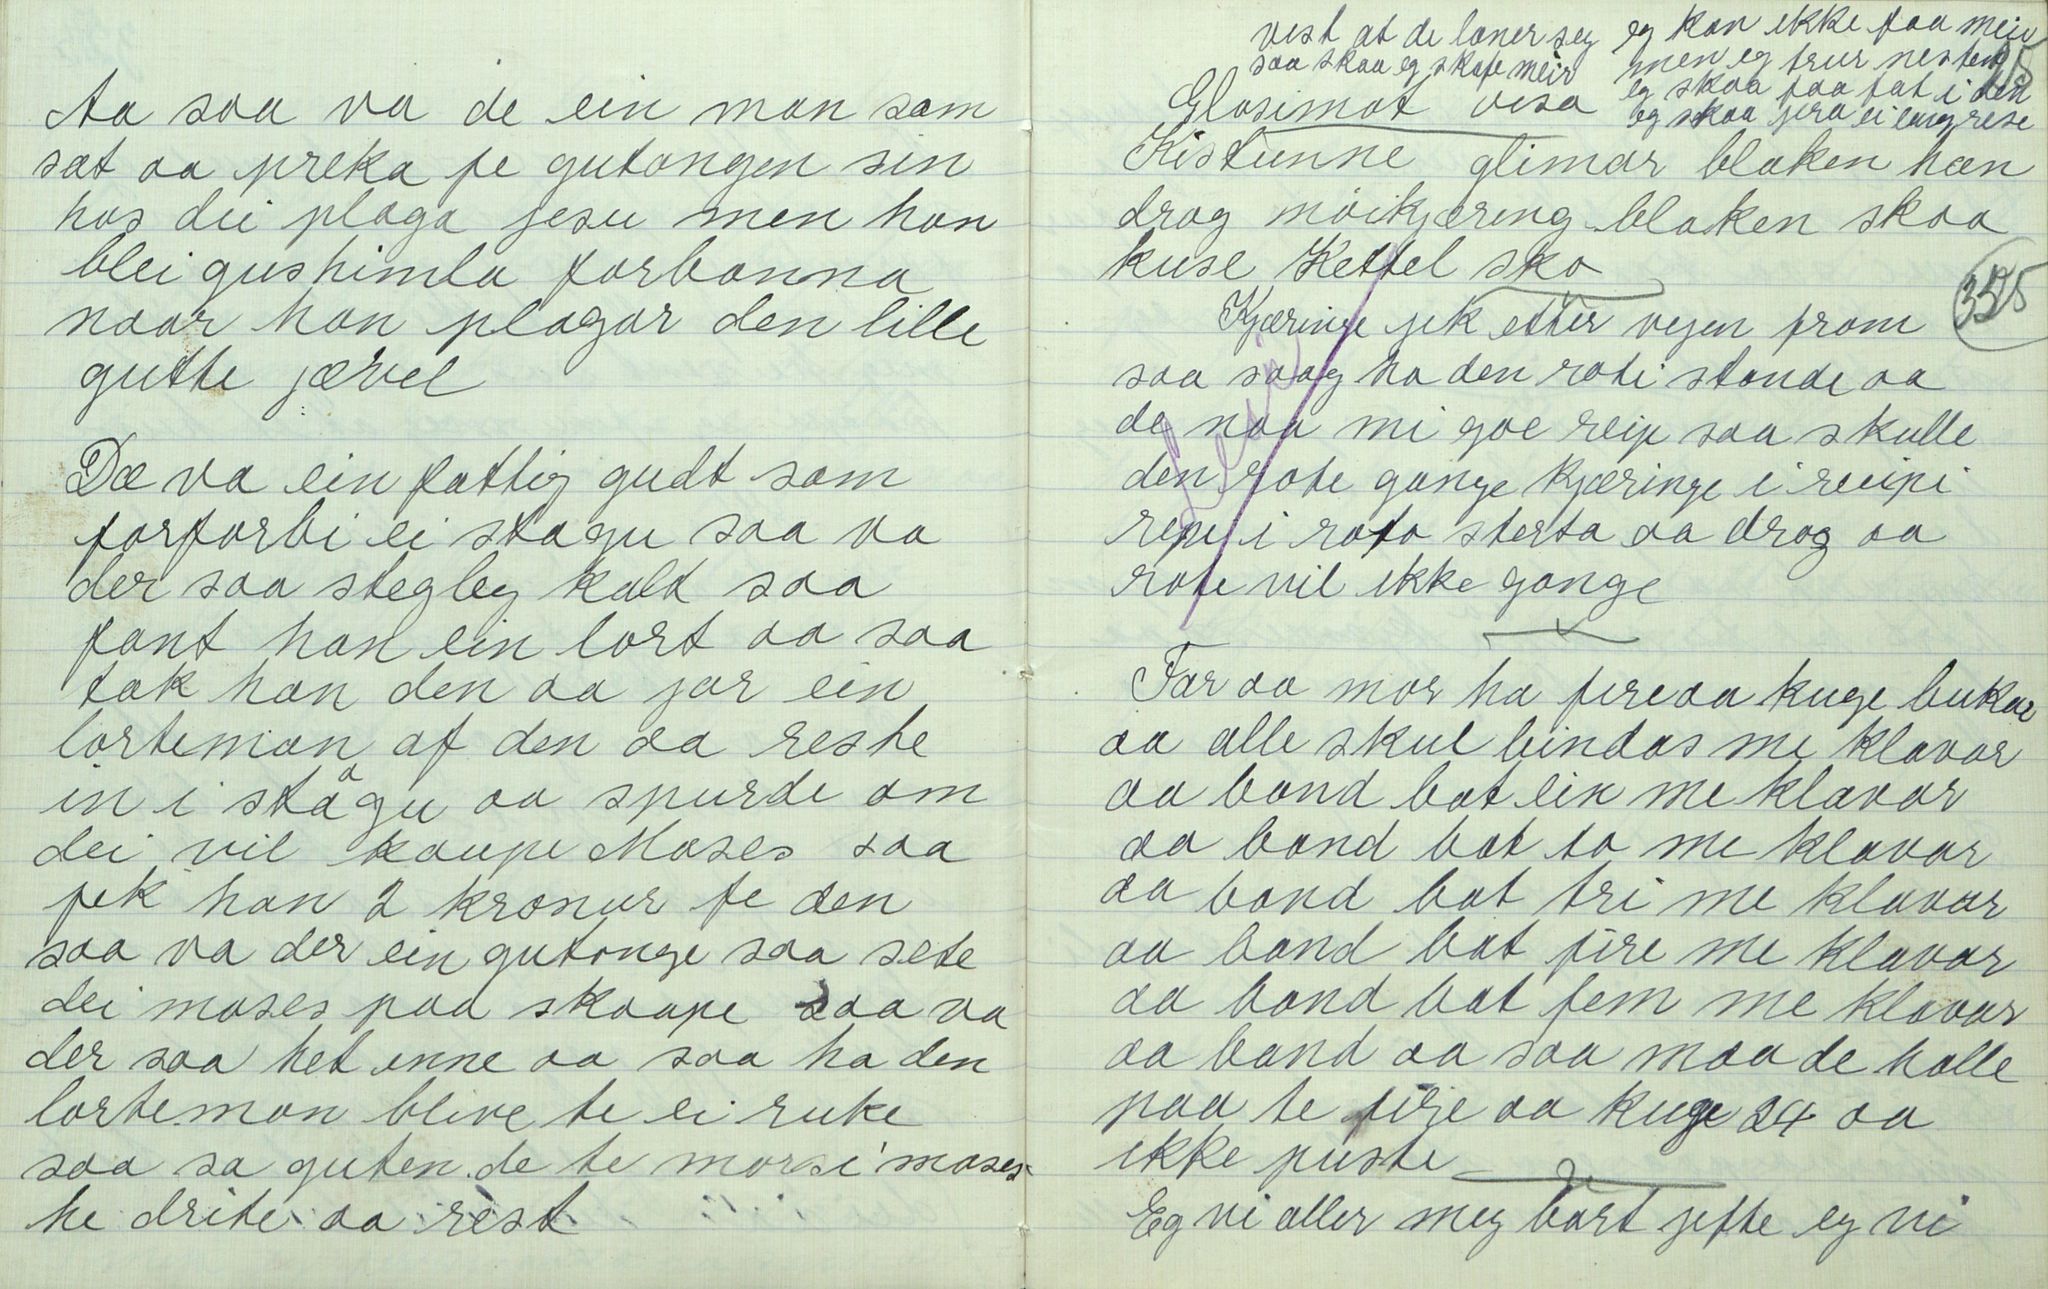 Aa saa va de ein man som
sat aa preka fe gutongen sin
hos dei plaga jesu men han
blei gushimla forbanna
naar han plagar den lille
gutte jævel
Dæ va ein fattig gudt som
forforbi ei stogu saa va
der saa stegleg kalt saa
fant han ein lort aa saa
tok han den aa jor ein
lorteman af den aa reste
in i stågu aa spurde om
dei vil kaupe Moses saa
fek han 2 kronur fe den
saa va der ein gutonge saa sete
dei moses paa skaape saa va
der saa het inne aa saa ha den
lorteman blive te ei ruke
saa sa guten de te morsi moses
he drite aa rest
vist at de løner seg
saa skaa eg skafe meir
eg kan ikke faa meir
men eg trur nesten
eg skaa faa fat i den
eg skaa jera ei lang rese
Glosimot visa
Kistunne glimar blaken han
drog móikjæring blaken skaa
kuse Kettel sko
3525
Kjæringe jek etter vejen from
saa saag ho den rote stonde aa
de naa mi goe reip saa skulle
den rote gange kjæringe i reipi
repe i rota sterta aa drog aa
rote vil ikke gonge
Far aa mor ha fire aa kuge bukar
aa alle skul bindas me klavar
aa band bat ein me klavar
aa band bat to me klavar
aa band bat tri me klavar
aa band bat fire me klavar
aa band bat fem me klavar
aa band aa saa maa de halle
paa te fire aa kuge 24 aa
ikke puste
Eg vi aller meg bort jefte eg vi